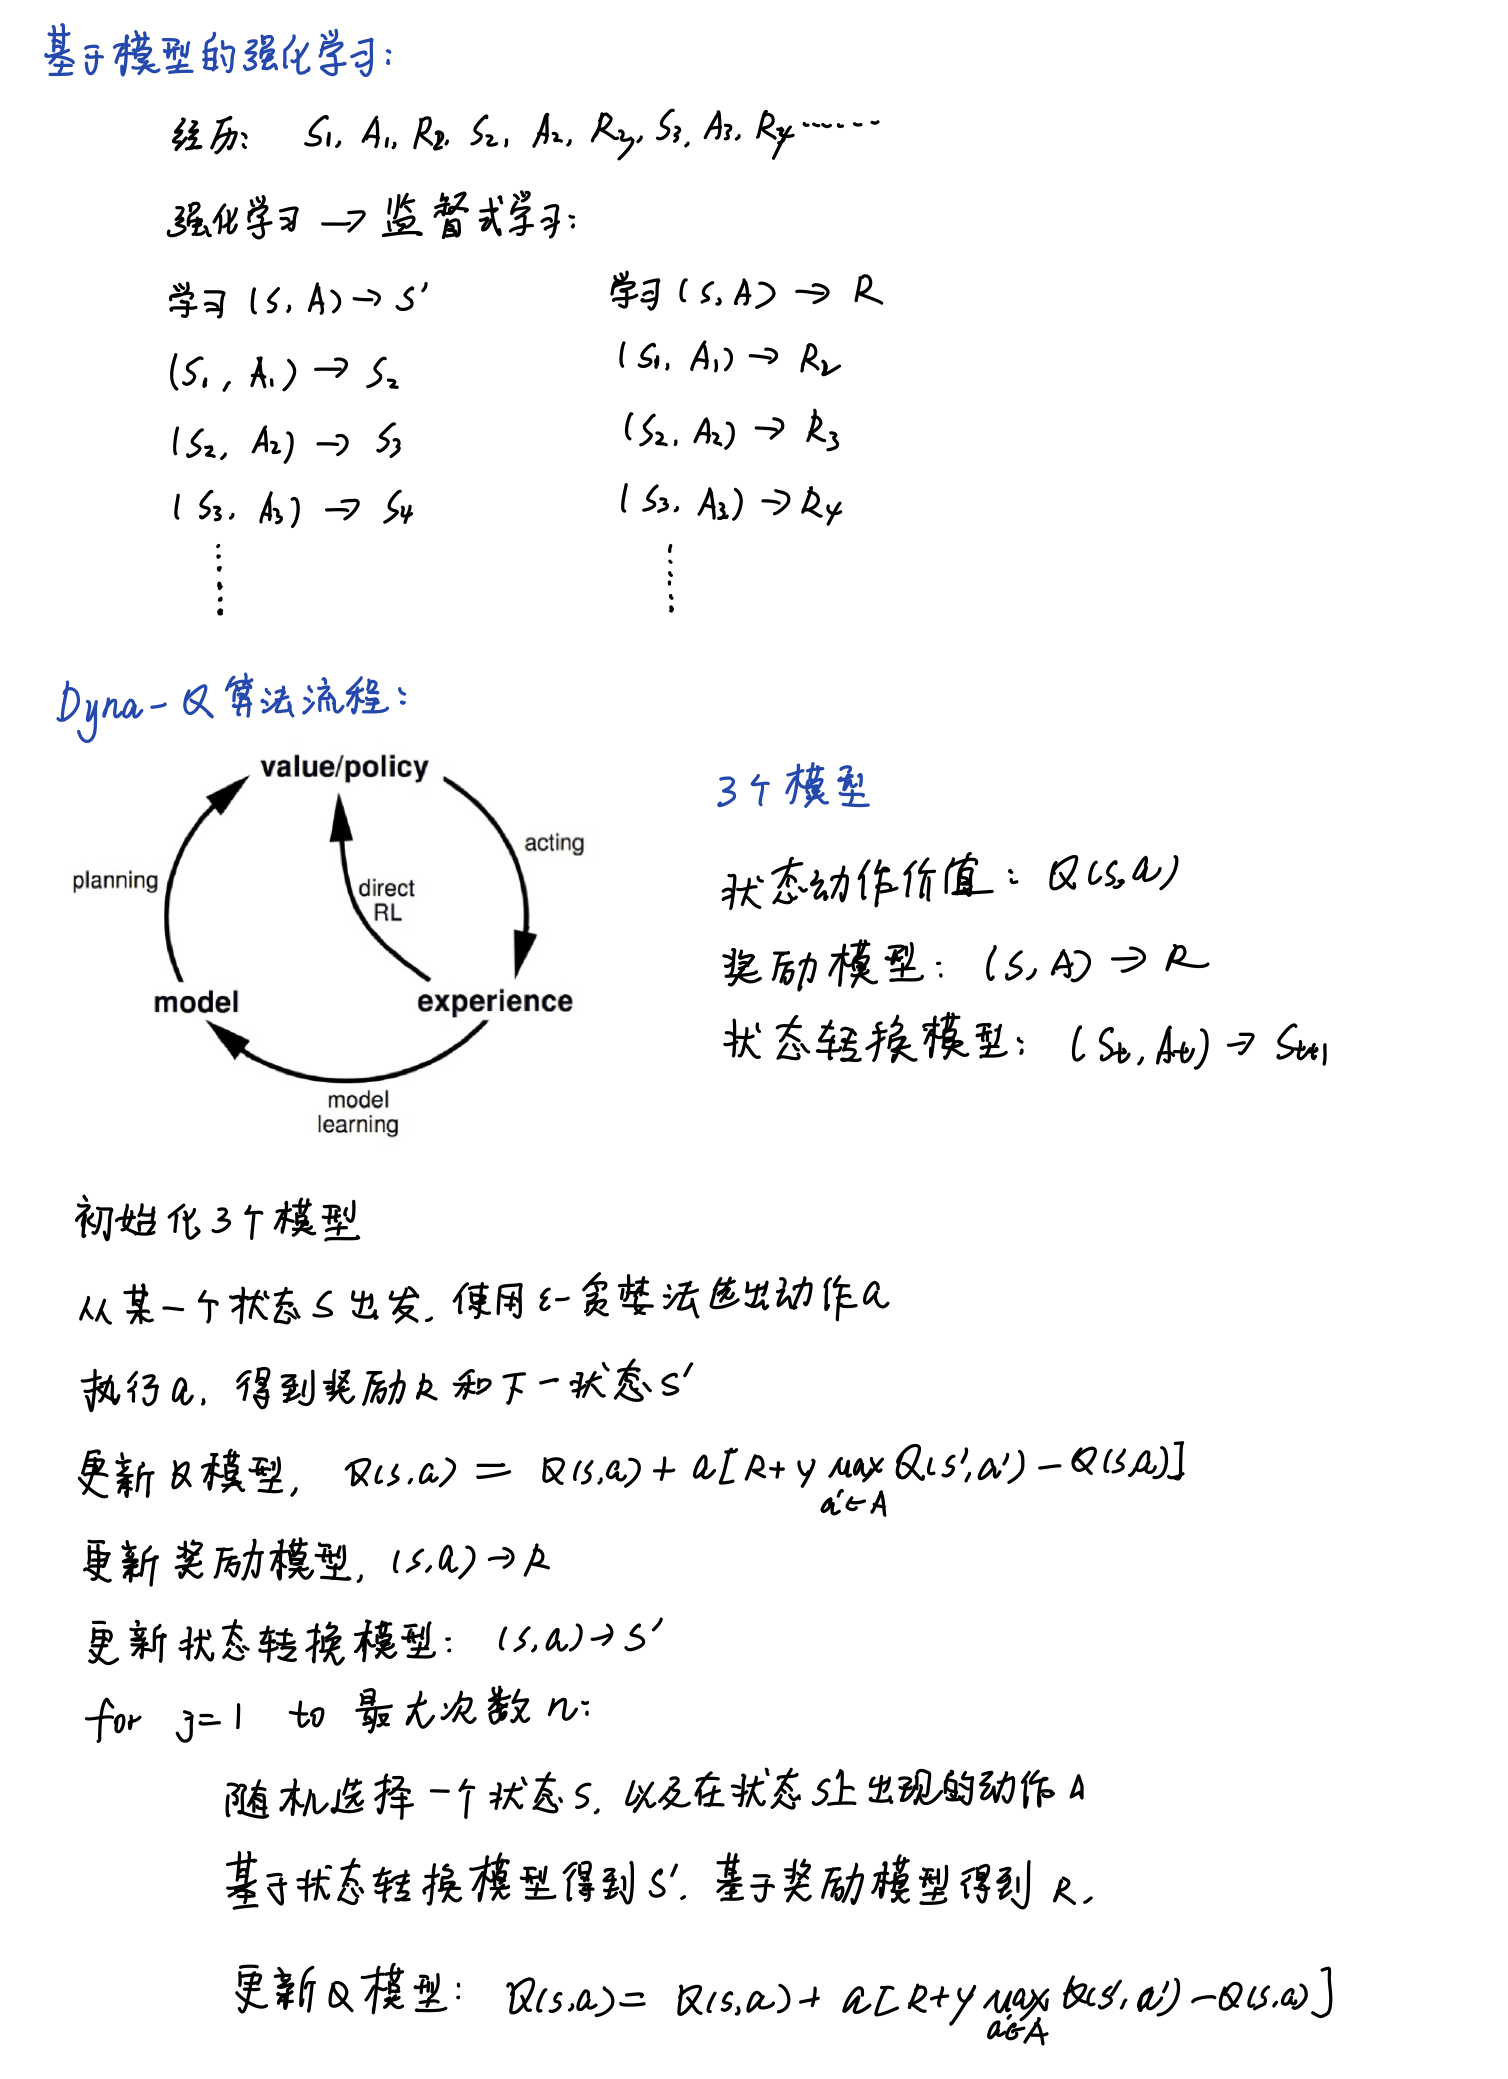 基于模型的强化学习:
经历: S1, A1, R2, S2, A2, R3, S3, A3, R4 ……
强化学习 → 监督式学习:
学习 (S, A) → S' 学习 (S, A) → R
(S1, A1) → S2 (S1, A1) → R2
(S2, A2) → S3 (S2, A2) → R3
(S3, A3) → S4 (S3, A3) → R4
Dyna-Q 算法流程:
value/policy
acting
planning
direct
RL
model
experience
model
learning
3个模型
状态动作价值: Q(s,a)
奖励模型: (S, A) → R
状态转换模型: (St, At) → St+1
初始化3个模型
从某一个状态S出发, 使用ε-贪婪法选出动作a
执行a, 得到奖励R和下一状态S'
更新Q模型, Q(s,a) = Q(s,a) + a[R+γ max Q(s',a') - Q(s,a)]
a'∈A
更新奖励模型, (s,a) → R
更新状态转换模型: (s,a) → s'
for j=1 to 最大次数n:
随机选择一个状态S, 以及在状态S上出现的动作A
基于状态转换模型得到S', 基于奖励模型得到R,
更新Q模型: Q(s,a) = Q(s,a) + a[R+γ max Q(s',a') - Q(s,a)]
a'∈A